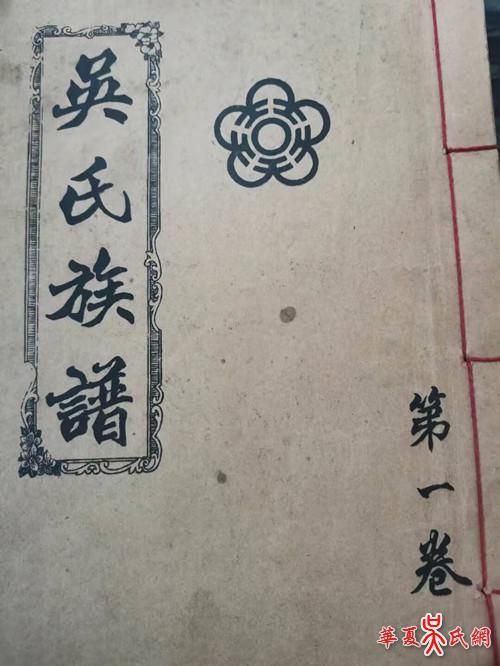 吳氏族譜
第一卷
華夏吳氏網